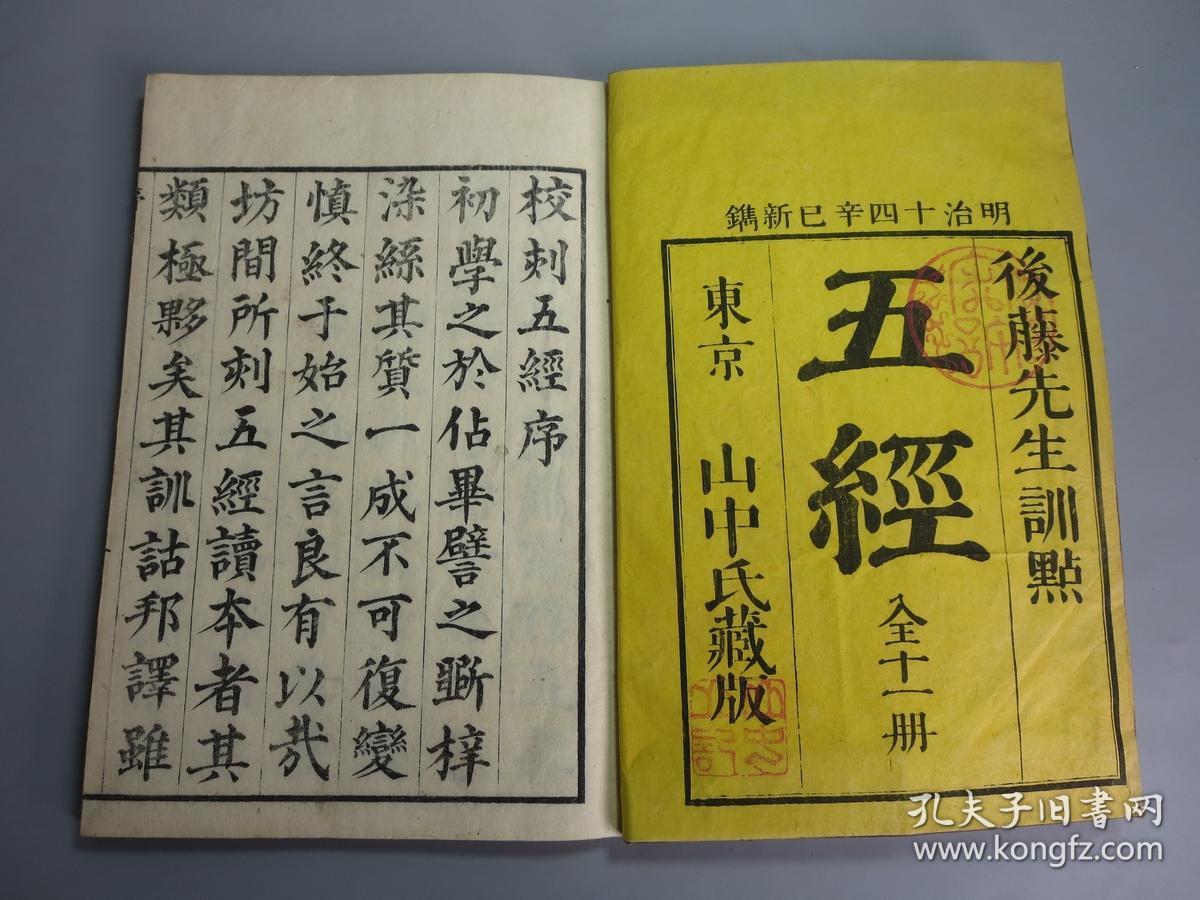 明治十四辛巳新鐫
後藤先生訓點
五經
全十一册
東京 山中氏藏版
校刻五經序
初學之於佔畢譬之斲梓
染絲其質一成不可復變
慎終于始之言良有以哉
坊間所刻五經讀本者其
類極夥矣其訓詁邦譯雖
孔夫子旧书网
www.kongfz.com